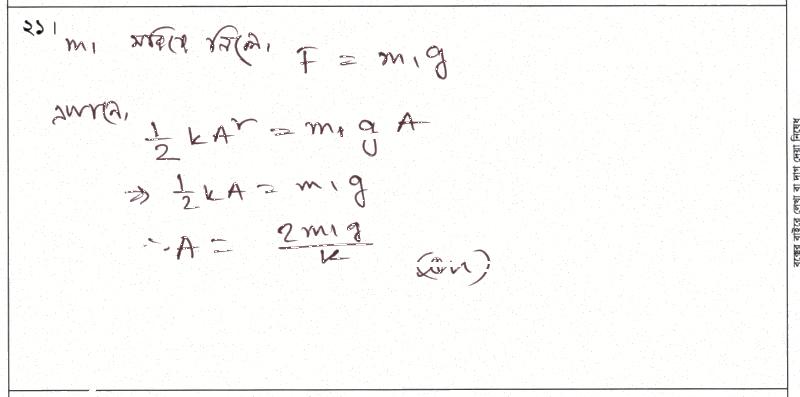 ২১।
m₁ সরিয়ে নিলে, F = m₁g
এখানে,
1/2 kA² = m₁ g A
⇒ 1/2 kA = m₁g
∴ A = 2m₁g/k (Ans)
বক্সের বাইরে লেখা বা দাগ দেয়া নিষেধ